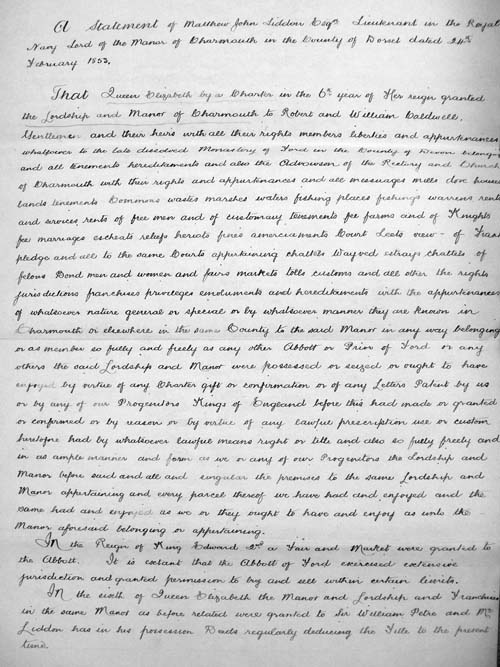 A Statement of Matthew John Liddon Esqre Lieutenant in the Royal
Navy Lord of the Manor of Charmouth in the County of Dorset dated 24th
February 1853.
That Queen Elizabeth by a Charter in the 6th year of Her reign granted
the Lordship and Manor of Charmouth to Robert and William Caldwell,
Gentlemen and their heirs with all their rights members liberties and appurtenances
whatsoever to the late dissolved Monastery of Ford in the County of Devon belonging
and all tenements hereditements and also the Advowson of the Rectory and Church
of Charmouth with their rights and appurtenances and all messuages mills dove houses
lands tenements Commons wastes marshes waters fishing places fishings warrens rents
and services, rents of free men and of customary tenements fee farms and of Knights
fee marriages escheats reliefs heriots fines amerciaments Court Leets view of Frank
pledge and all to the same Courts appurtaining chattels Wayved estrays chattels of
felons Bond men and women and fairs markets tolls customs and all other the rights
jurisdictions franchises privileges emoluments and hereditements with the appurtenances
of whatsoever nature general or special or by whatsoever manner they are known in
Charmouth or elsewhere in the same County to the said Manor in any way belonging
or as member so fully and freely as any other Abbott or Prior of Ford or any
others the said Lordship and Manor were possessed or seized or ought to have
enjoyed by virtue of any Charter gift or confirmation or of any Letters Patent by us
or by any of our Progenitors Kings of England before this had made or granted
or confirmed or by reason or by virtue of any lawful prescription use or custom
heretofore had by whatsoever lawful means right or title and also so fully freely and
in as ample manner and form as we or any of our Progenitors the Lordship and
Manor before said and all and singular the premises to the same Lordship and
Manor appertaining and every parcel thereof we have had and enjoyed and the
same had and enjoyed as we or they ought to have and enjoy as unto the
Manor aforesaid belonging or appertaining.
In the Reign of King Edward 2nd a Fair and Market were granted to
the Abbott. It is extant that the Abbott of Ford exercised extensive
jurisdiction and granted permission to buy and sell within certain limits.
In the sixth of Queen Elizabeth the Manor and Lordship and Franchises
in the same Manor as before related were granted to Sir William Petre and Mr
Liddon has in his possession Deeds regularly deducing the Title to the present
time.